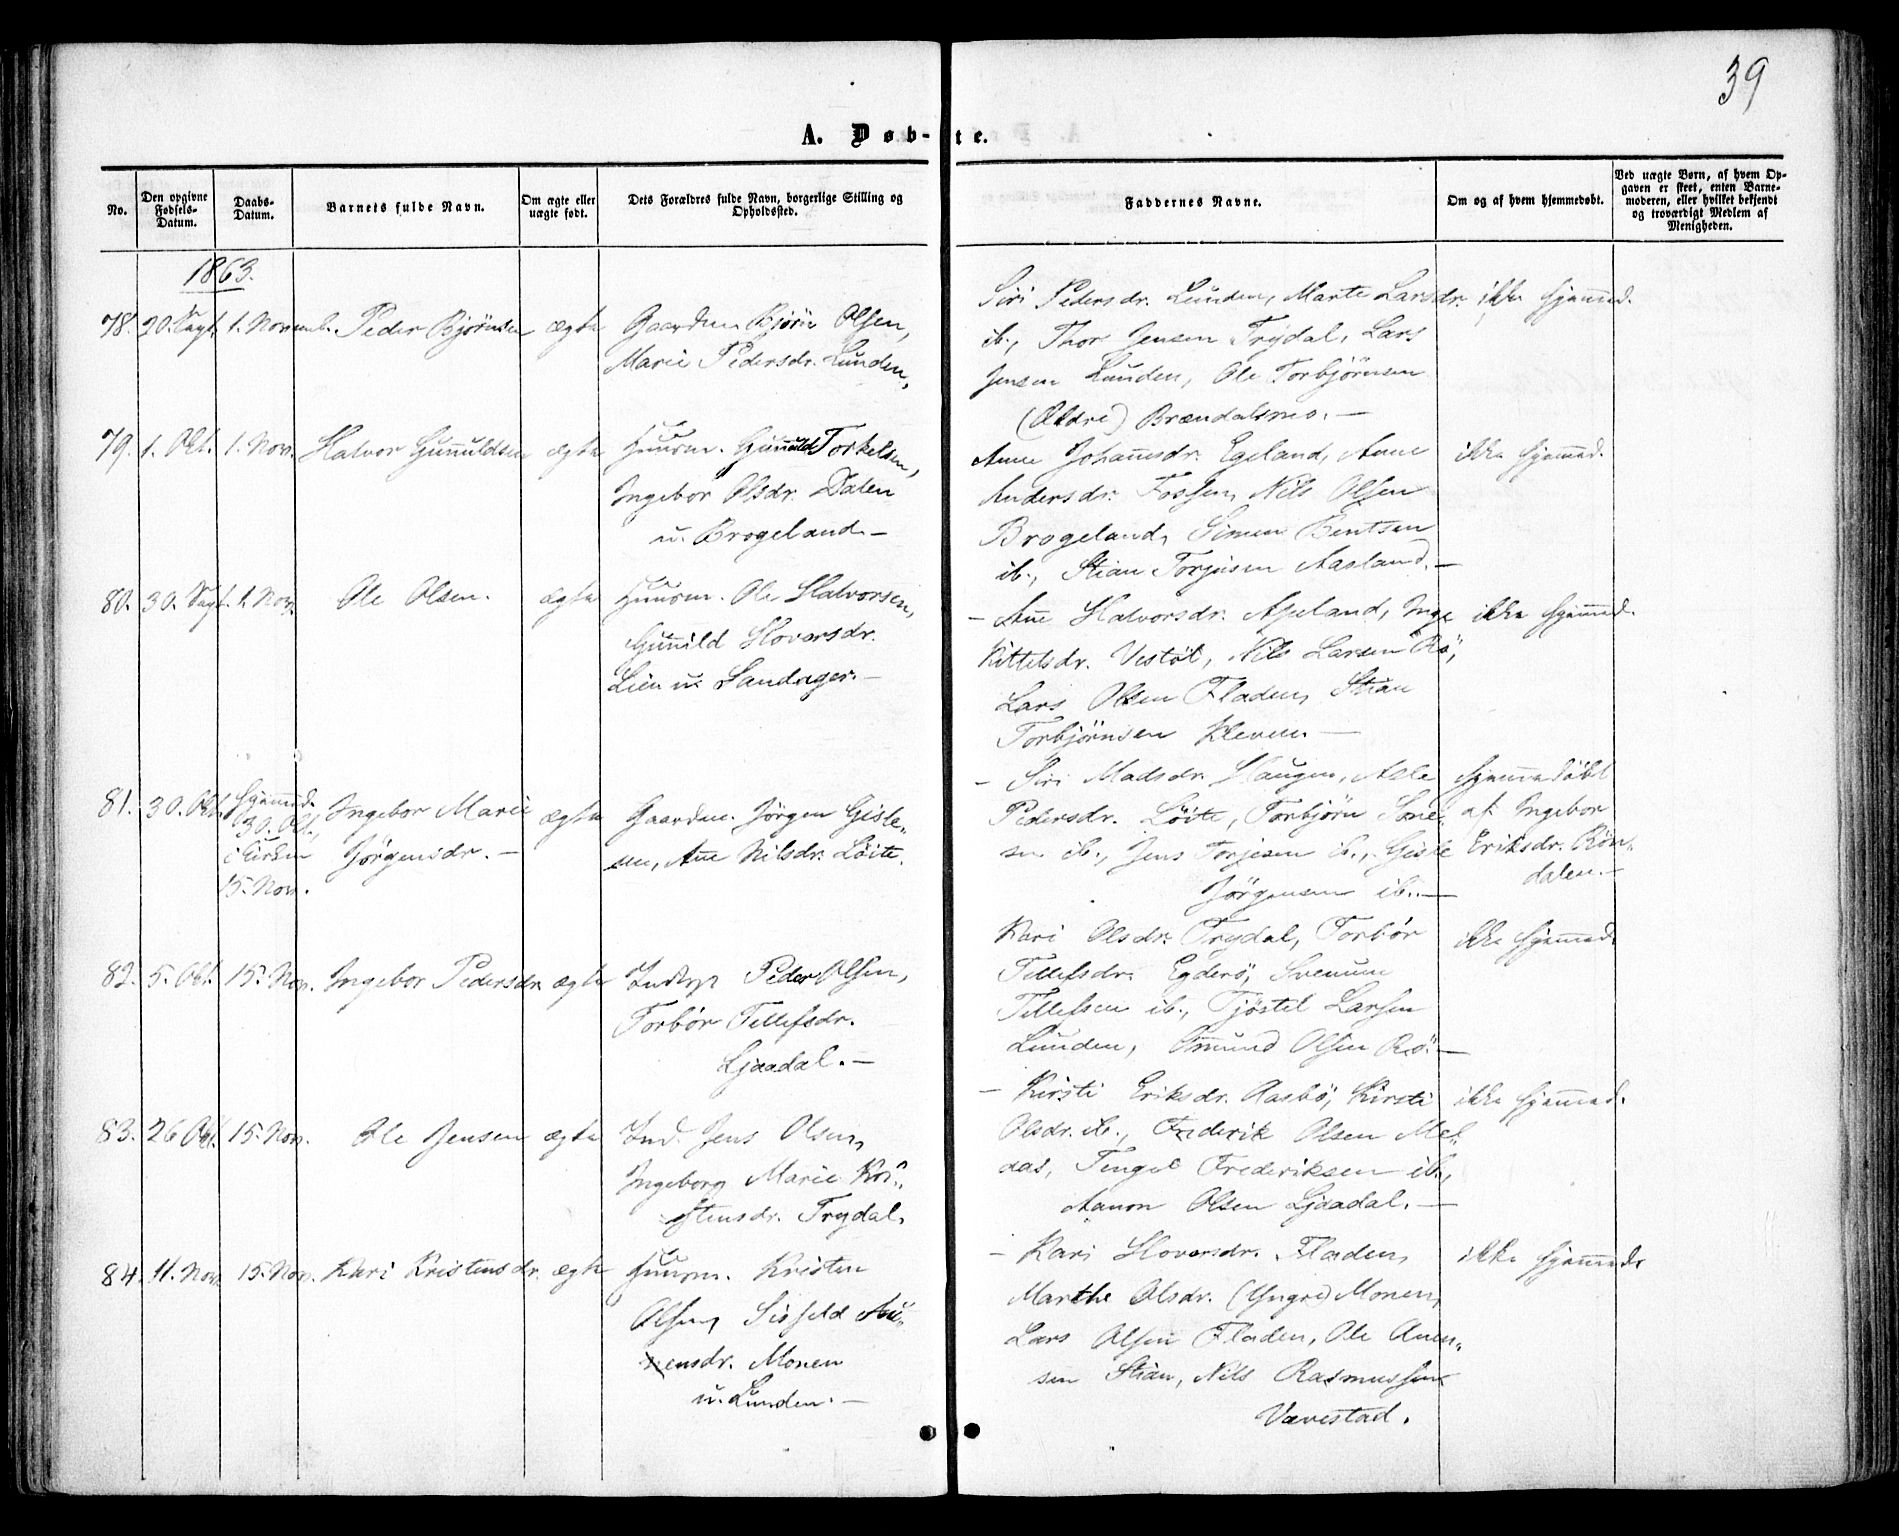 39
A. Døb-te.
No.
Den opgivne Fødsels-Datum.
Daabs-Datum.
Barnets fulde Navn.
Om ægte eller uægte født.
Dets Forældres fulde Navn, borgerlige Stilling og Opholdssted.
Faddernes Navne.
Om og af hvem hjemmedøbt.
Ved uægte Børn, af hvem Opgaven er skeet, enten Barnemoderen, eller hvilket bekjendt og troværdigt Medlem af Menigheden.
1863.
78. 20. Sept. 1. Novemb. Peder Bjørnsen ægte Gaardm. Bjørn Olsen,
Marie Pedersdr. Lunden,
Siri Pedersdr. Lunden, Marte Larsdr. ikke hjemmed.
ib., Thor Jensen Trydal, Lars
Jensen Lunden, Ole Torbjørnsen
(Ældre) Brændalsmo. —
79. 1. Okt. 1. Nov. Halvor Gunnuldsen ægte Huusm. Gunnuld Torkelsen,
Ingebor Olsdr. Dalen
u. Brogeland. —
Anne Johannsdr. Egeland, Anne ikke hjemmed.
Andersdr. Fossen, Nils Olsen
Brogeland, Simen Bentsen
ib., Stian Torjusen Aasland. —
80. 30. Sept. 1. Nov. Ole Olsen. ægte Huusm. Ole Halvorsen,
Gunnild Hovorsdr.
Lien u. Sandager. —
— Ane Halvorsdr. Apeland, Inge ikke hjemmed.
Kittelsdr. Vestøl, Nils Larsen Rö,
Lars Olsen Fladen, Stian
Torbjørnsen Kleven. —
81. 30. Okt. Hjemmed. 30. Okt., i Kirken 15. Nov. Ingebor Marie
Jørgensdr. — ægte Gaardm. Jørgen Gisle-
sen, Ane Nilsdr. Löite.
— Siri Madsdr. Haugen, Asle hjemmedöbt
Pedersdr. Löite, Torbjørn Töne- af Ingebor
sen ib., Jens Torjesen ib., Gisle Eriksdr. Rön-
Jörgensen ib. — dalen. —
82. 5. Okt. 15. Nov. Ingebor Pedersdr. ægte Inderst Peder Olsen,
Torbör Tellefsdr.
Ljaadal. —
Kari Olsdr. Trydal, Torbör ikke hjemmed.
Tellefsdr. Egderö, Svenum
Tellefsen ib., Tjöstel Larsen
Lunden, Omund Olsen Rö. —
83. 26 Okt. 15. Nov. Ole Jensen ægte Ind. Jens Olsen,
Ingeborg Marie Kri-
stensdr. Trydal,
— Kirsti Eriksdr. Aasbö, Kirsti ikke hjemmed.
Olsdr. ib., Frederik Olsen Mel-
das, Tengel Frederiksen ib.,
Aanon Olsen Ljaadal. —
84. 11. Nov. 15. Nov. Kari Kristensdr. ægte Huusm. Kristen
Olsen, Sisseld An-
ensdr. Monen
u. Lunden. —
— Kari Hovorsdr. Fladen, ikke hjemmed.
Marthe Olsdr. (Yngre) Monen,
Lars Olsen Fladen, Ole Anen-
sen Stian, Nils Rasmussen
Vævestad.